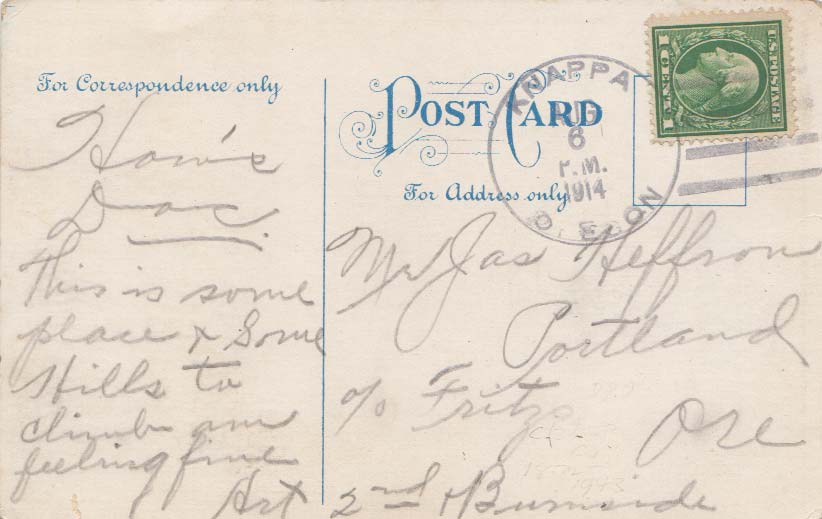 For Correspondence only
How's
Doc.
This is some
place & Some
Hills to
climb am
feeling fine
Art
POST CARD
For Address only
KNAPPA
AUG
6
P.M.
1914
OREGON
U.S. POSTAGE
1 CENT 1
Mr Jas Heffron
Portland
c/o Fritzs
Ore
2nd & Burnside